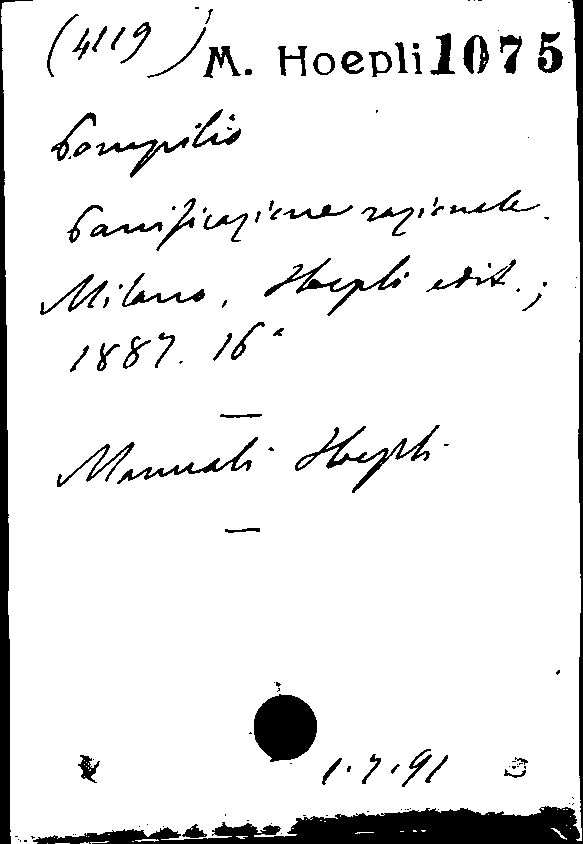 (4119) M. Hoepli 1075
Pompilio
Panificazione razionale.
Milano, Hoepli edit.;
1887. 16°
Manuali Hoepli
1.7.91